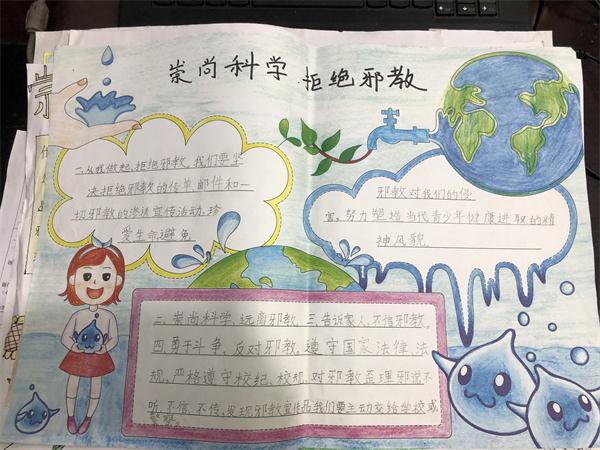 崇尚科学 拒绝邪教
一.从我做起,拒绝邪教,我们要坚
决拒绝邪教的传单.邮件和一
切邪教的渗透宣传活动,珍
爱生命,避免
邪教对我们的侵
害,努力塑造当代青少年健康进取的精
神风貌
二、崇尚科学、远离邪教、三、告诉家人、不信邪教。
四.勇于斗争,反对邪教。遵守国家法律、法
规,严格遵守校纪、校规、对邪教歪理邪说不
听、不信、不传、发现邪教宣传品我们要主动交给学校或